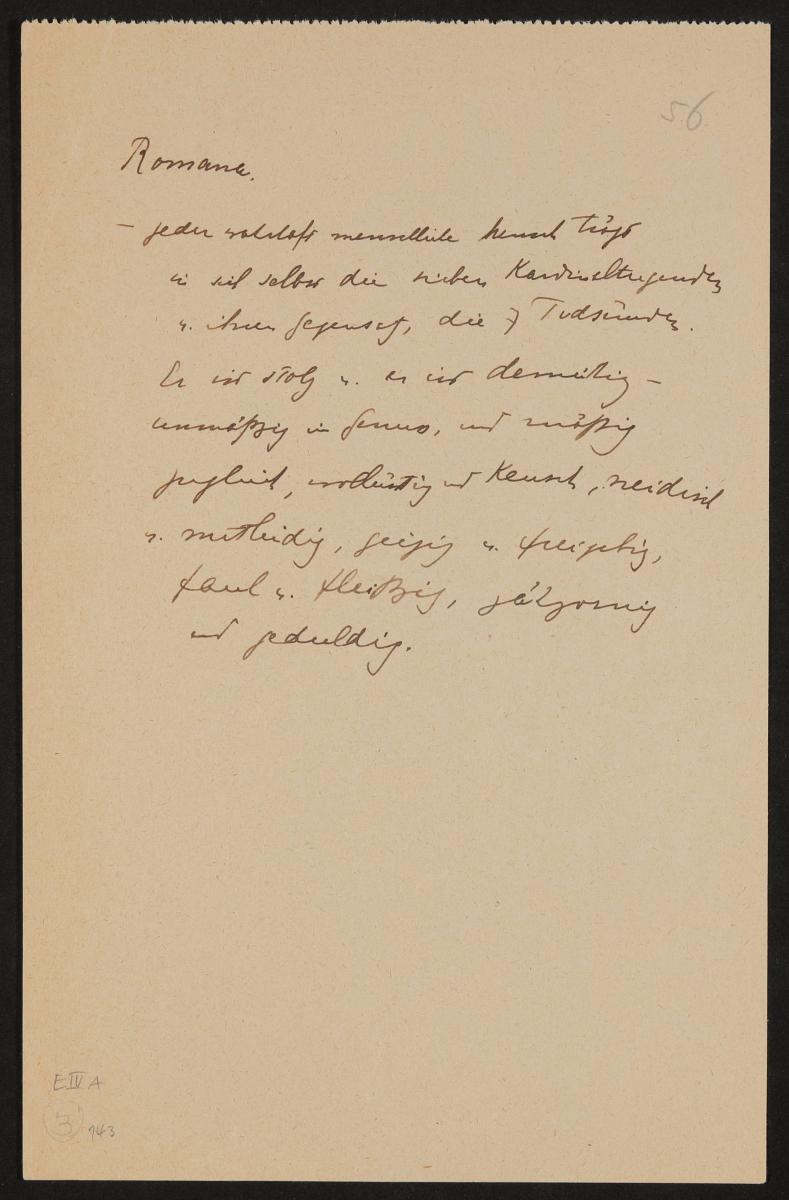 56
Romana.
– jeder wahrhaft menschliche Mensch trägt
in sich selbst die sieben Kardinaltugenden
u. ihren Gegensatz, die 7 Todsünden.
Er ist stolz u. er ist demütig –
unmäßig im Genuss, und mäßig
zugleich, wollüstig und keusch, neidisch
u. mitleidig, geizig u. freigebig,
faul u. fleißig, jähzornig
und geduldig.
E IV A
3 143